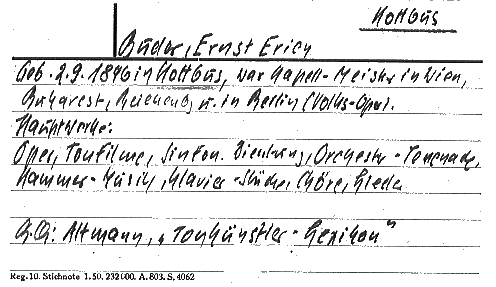 Kottbus
Buder, Ernst Erich
Geb. 2.9.1896 in Kottbus, war Kapell-Meister in Wien,
Bukarest, Reichenbg u. in Berlin (Volks-Oper).
Hauptwerke:
Oper, Tonfilme, Sinfon. Dichtung, Orchester-
Kammer-Musik, Klavier-Stücke, Chöre, Lieder
Altmann, „Tonkünstler-Lexikon"
Reg. 10. Stichnote 1.50. 232000. A. 803. S. 4062